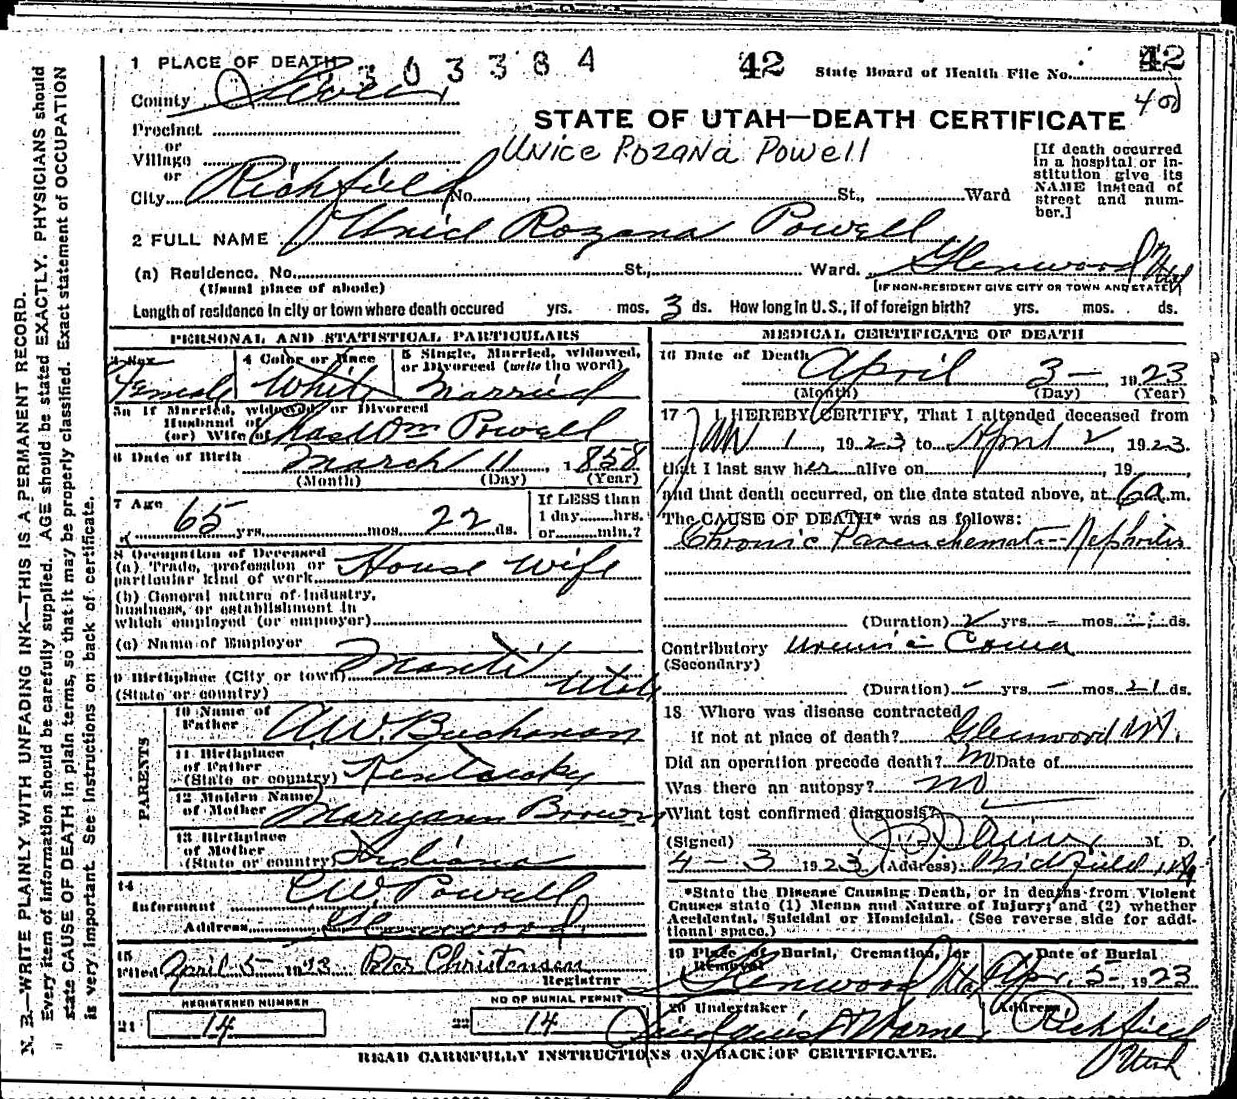 1 PLACE OF DEATH 303384 42 State Board of Health File No. 42
County Sevier
Precinct
STATE OF UTAH—DEATH CERTIFICATE
or
Village
Unice Rozana Powell
or
City Richfield No. St., Ward
[If death occurred
in a hospital or in-
stitution give its
NAME instead of
street and num-
ber.]
2 FULL NAME Unice Rozana Powell
(a) Residence. No. St., Ward. Glenwood Utah
(Usual place of abode) [IF NON-RESIDENT GIVE CITY OR TOWN AND STATE]
Length of residence in city or town where death occured yrs. mos. 3 ds. How long in U.S., if of foreign birth? yrs. mos. ds.
PERSONAL AND STATISTICAL PARTICULARS
3 Sex Female
4 Color or Race White
5 Single, Married, widowed,
or Divorced (write the word)
Married
5a If Married, widowed or Divorced
Husband of
(or) Wife of Chas Wm Powell
6 Date of Birth March 11, 1858
(Month) (Day) (Year)
7 Age 65 yrs. mos. 22 ds.
If LESS than
1 day hrs.
or min.?
8 Occupation of Deceased
(a) Trade, profession or
particular kind of work House Wife
(b) General nature of Industry,
business, or establishment in
which employed (or employer)
(c) Name of Employer
9 Birthplace (City or town) Manti
(State or country) Utah
PARENTS
10 Name of
Father A.W. Buchanan
11 Birthplace
of Father
(State or country) Kentucky
12 Maiden Name
of Mother Maryann Brown
13 Birthplace
of Mother
(State or country) Indiana
14
Informant C W Powell
Address Glenwood
15
Filed April 5 1923 Peter Christensen
Registrar
REGISTERED NUMBER
21 14
NO OF BURIAL PERMIT
22 14
MEDICAL CERTIFICATE OF DEATH
16 Date of Death April 3- 1923
(Month) (Day) (Year)
17 I HEREBY CERTIFY, That I attended deceased from
Jan 1, 1923 to April 2, 1923
that I last saw her alive on , 19
and that death occurred, on the date stated above, at 6 a.m.
The CAUSE OF DEATH* was as follows:
Chronic Parenchemat-- Nephritis
(Duration) 2 yrs. - mos. - ds.
Contributory uremic Coma
(Secondary)
(Duration) - yrs. - mos. 21 ds.
18 Where was disease contracted
if not at place of death? Glenwood Ut.
Did an operation precede death? no Date of
Was there an autopsy? no
What test confirmed diagnosis?
(Signed) M. D.
4-3 1923 (Address) Richfield
*State the Disease Causing Death, or in deaths from Violent
Causes state (1) Means and Nature of Injury; and (2) whether
Accidental, Suicidal or Homicidal. (See reverse side for addi-
tional space.)
19 Place of Burial, Cremation, or
Removal
Glenwood Uta
Date of Burial
Apr. 5- 1923
20 Undertaker
Address
Richfield
Utah
READ CAREFULLY INSTRUCTIONS ON BACK OF CERTIFICATE.
N. B.—WRITE PLAINLY WITH UNFADING INK—THIS IS A PERMANENT RECORD.
Every item of information should be carefully supplied. AGE should be stated EXACTLY. PHYSICIANS should
state CAUSE OF DEATH in plain terms, so that it may be properly classified. Exact statement of OCCUPATION
is very important. See Instructions on back of certificate.